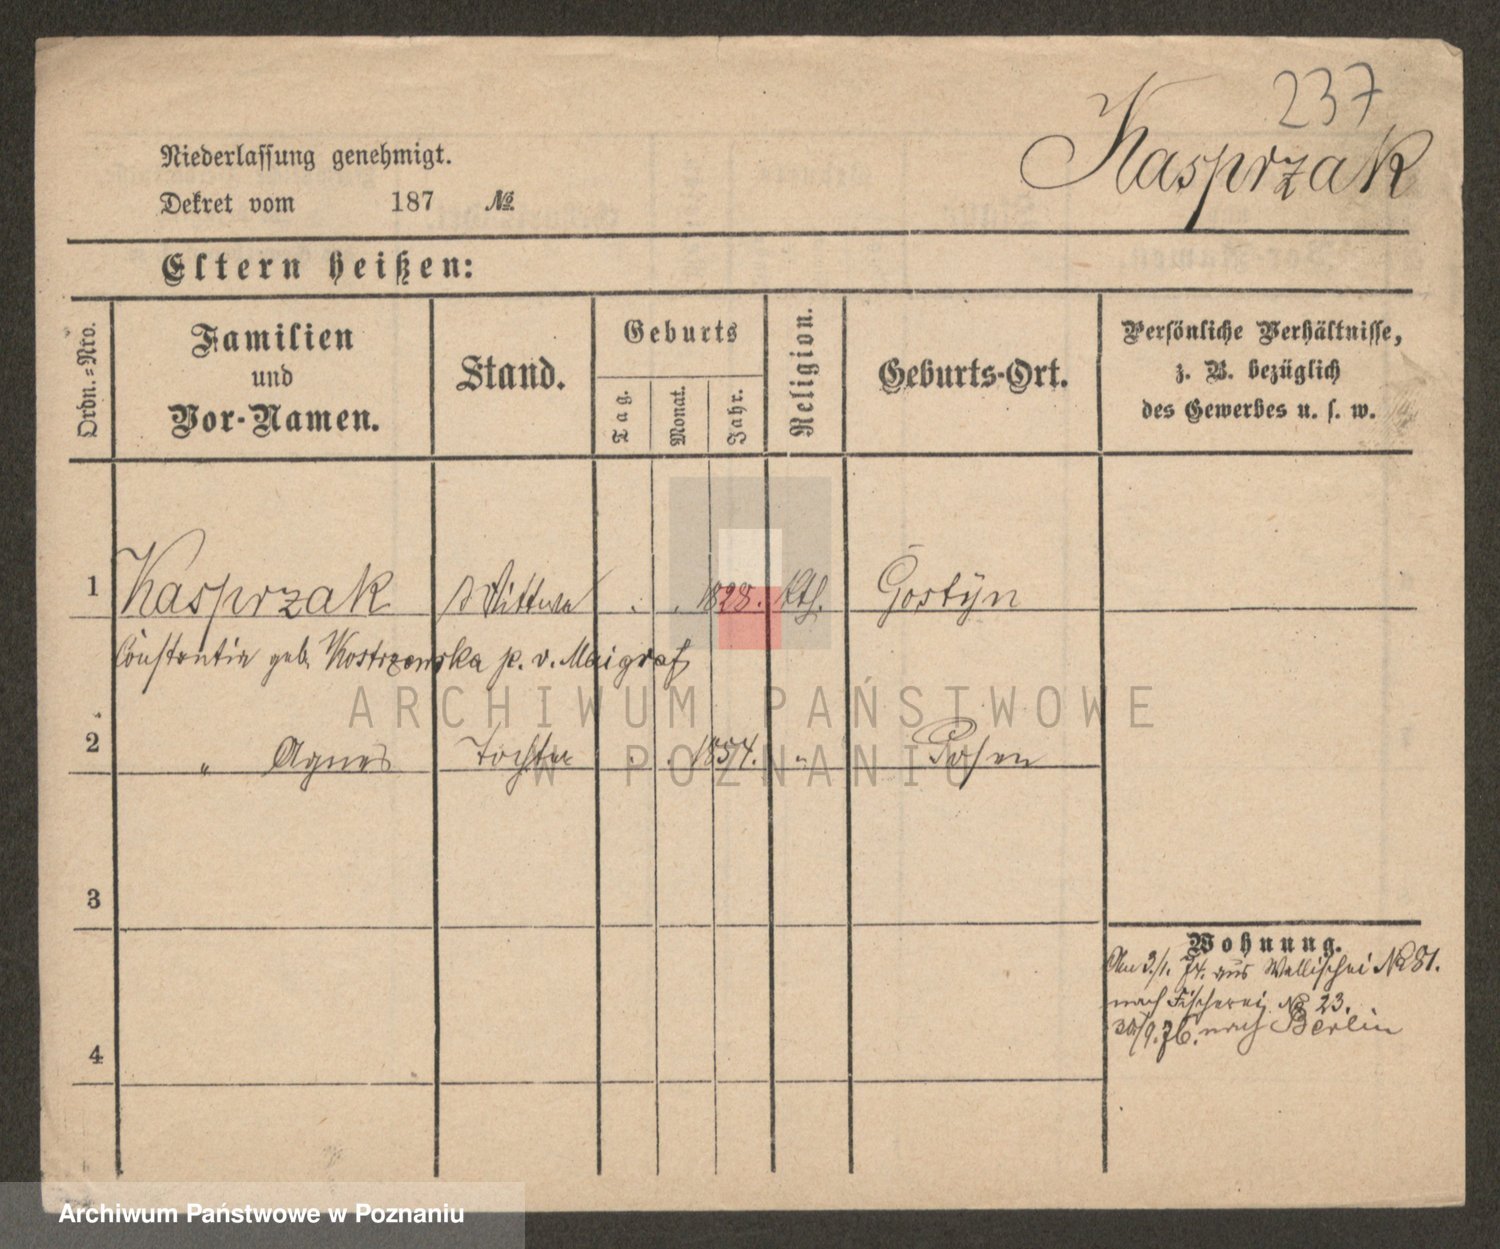 237
Kasprzak
Niederlassung genehmigt.
Dekret vom 187 №
Eltern heißen:
Ordn.-Nro.
Familien
und
Vor-Namen.
Stand.
Geburts
Tag.
Monat.
Jahr.
Religion.
Geburts-Ort.
Persönliche Verhältnisse,
z. B. bezüglich
des Gewerbes u. s. w.
1 Kasprzak Wittwe 1828. Kth. Gostÿn
Constantia geb. Kostrzewska p. v. Maigraf
2 " Agnes Tochter 1854. " Posen
3
4
Wohnung.
Am 3./1. 74. aus Wallischei № 81.
nach Fischerei № 23.
30/9. 76. nach Berlin
ARCHIWUM PAŃSTWOWE
W POZNANIU
Archiwum Państwowe w Poznaniu